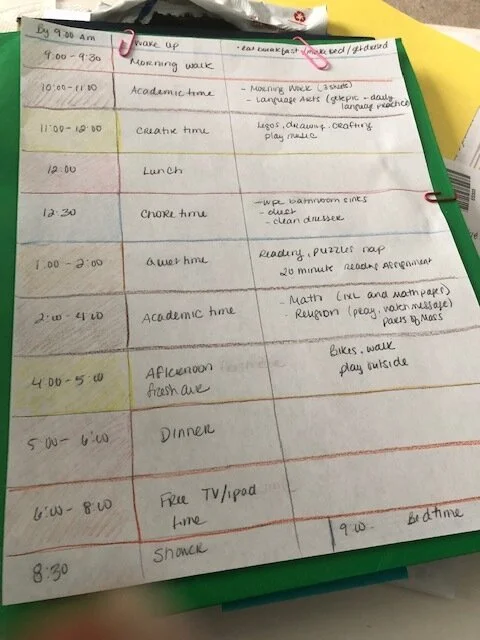 By 9:00 Am Wake up • eat breakfast make bed / get dressed
9:00 - 9:30 Morning walk
10:00 - 11:00 Academic time - Morning Work (3 sheets)
- Language Arts (getepic - daily
language practice)
11:00 - 12:00 Creative time Legos, drawing, crafting
play music
12:00 Lunch
12:30 Chore time - wipe bathroom sinks
- dust
- clean dresser
1:00 - 2:00 Quiet time Reading, puzzles nap
20 minute Reading Assignment
2:00 - 4:00 Academic time - Math (IXL and math paper)
- Religion (pray, watch message)
parts of Mass
4:00 - 5:00 Afternoon
fresh air
Bikes, walk
play outside
5:00 - 6:00 Dinner
6:00 - 8:00 Free TV/ipad
time
8:30 Shower 9:00 - Bedtime